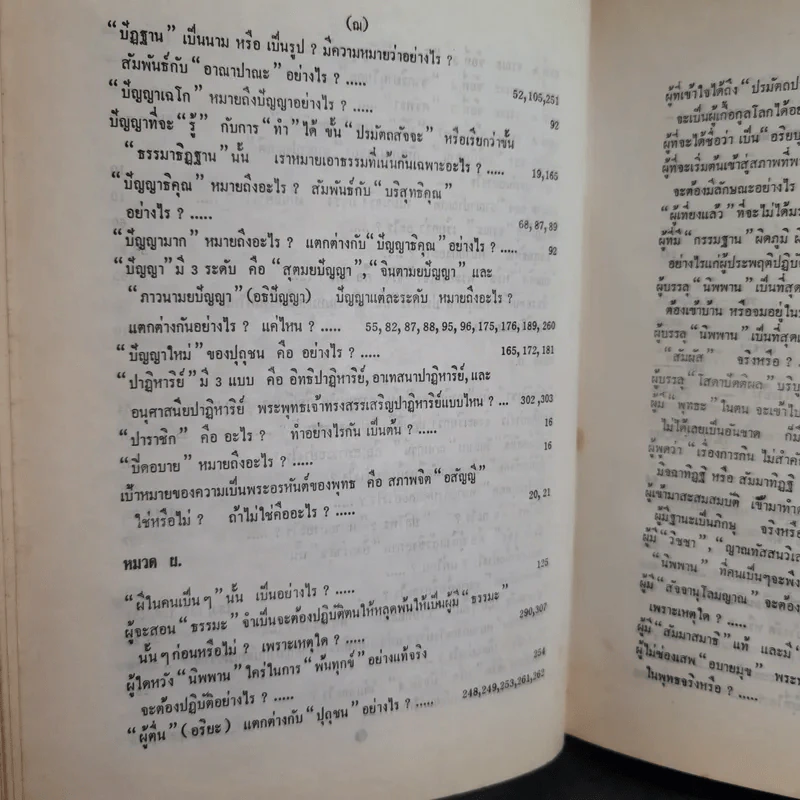 (ณ)
“ปัฏฐาน” เป็นนาม หรือ เป็นรูป ? มีความหมายว่าอย่างไร ?
สัมพันธ์กับ “อาณาปาณะ” อย่างไร ? ..... 52,105,251
“ปัญญาเฉโก” หมายถึงปัญญาอย่างไร ? ..... 92
ปัญญาที่จะ “รู้” กับการ “ทำ” ได้ ขั้น “ปรมัตถสัจจะ” หรือเรียกว่าขั้น
“ธรรมาธิฏฐาน” นั้น เราหมายเอาธรรมที่เน้นกันเฉพาะอะไร ? ..... 19,165
“ปัญญาธิคุณ” หมายถึงอะไร ? สัมพันธ์กับ “บริสุทธิคุณ”
อย่างไร ? ..... 68,87,89
“ปัญญามาก” หมายถึงอะไร ? แตกต่างกับ “ปัญญาธิคุณ” อย่างไร ? ..... 92
“ปัญญา” มี 3 ระดับ คือ “สุตมยปัญญา”, “จินตามยปัญญา” และ
“ภาวนามยปัญญา” (อธิปัญญา) ปัญญาแต่ละระดับ หมายถึงอะไร ?
แตกต่างกันอย่างไร ? แค่ไหน ? ..... 55, 82, 87, 88, 95, 96, 175, 176, 189, 260
“ปัญญาใหม่” ของปุถุชน คือ อย่างไร ? ..... 165, 172, 181
“ปาฏิหาริย์” มี 3 แบบ คือ อิทธิปาฏิหาริย์, อาเทสนาปาฏิหาริย์, และ
อนุศาสนียปาฏิหาริย์ พระพุทธเจ้าทรงสรรเสริญปาฏิหาริย์แบบไหน ? ... 302, 303
“ปาราชิก” คือ อะไร ? ทำอย่างไรกัน เป็นต้น ? ..... 16
“ปิดอบาย” หมายถึงอะไร ? ..... 16
เป้าหมายของความเป็นพระอรหันต์ของพุทธ คือ สภาพจิต “อสัญญี”
ใช่หรือไม่ ? ถ้าไม่ใช่คืออะไร ? ..... 20, 21
หมวด ผ.
“ผีในคนเป็น ๆ” นั้น เป็นอย่างไร ? ..... 125
ผู้จะสอน “ธรรมะ” จำเป็นจะต้องปฏิบัติตนให้หลุดพ้นให้เป็นผู้มี “ธรรมะ”
นั้น ๆ ก่อนหรือไม่ ? เพราะเหตุใด ? ..... 290,307
ผู้ใดหวัง “นิพพาน” ใคร่ในการ “พ้นทุกข์” อย่างแท้จริง
จะต้องปฏิบัติอย่างไร ? ..... 254
“ผู้ตื่น” (อริยะ) แตกต่างกับ “ปุถุชน” อย่างไร ? ..... 248,249,253,261,262
ผู้ที่เข้าใจได้ถึง “ปรมัตถป
จะเป็นผู้เกื้อกูลโลกได้อย
ผู้ที่จะได้ชื่อว่า เป็น “อริยบุ
ผู้ที่จะเริ่มต้นเข้าสู่สภาพที่พ
จะต้องมีลักษณะอย่างไร
“ผู้เที่ยงแล้ว” ที่จะไม่ได้มร
ผู้ที่มี “กรรมฐาน” ผิดภูมิ ผิ
อย่างไรแก่ผู้ประพฤติปฏิบั
ผู้บรรลุ “นิพพาน” เป็นที่สุด
ต้องเข้าบ้าน หรือจมอยู่ในบ
ผู้บรรลุ “นิพพาน” เป็นที่สุดแ
“สัมผัส” จริงหรือ ?
ผู้บรรลุ “โสดาปัตติผล” บริบู
ผู้มี “พุทธะ” ในตน จะเข้าไป
ไม่ได้เลยเป็นอันขาด ก็มี
ผู้พูดว่า “เรื่องการกิน ไม่สำคั
มิจฉาทิฏฐิ หรือ สัมมาทิฏฐิ
ผู้เข้ามาสะสมสมบัติ เข้ามาทำต
ผู้มีฐานะเป็นภิกษุ จริงหรือ
ผู้มี “วิชชา”, “ญาณทัสสนวิเส
“นิพพาน” ที่คนเป็นๆจะพึง
ผู้มี “สัจจานุโลมญาณ” จะต้อง
เพราะเหตุใด ? .....
ผู้มี “สัมมาสมาธิ” แท้ และมี
ผู้ไม่ซ่องเสพ “อบายมุข” พระพ
ในพุทธจริงหรือ ? .....